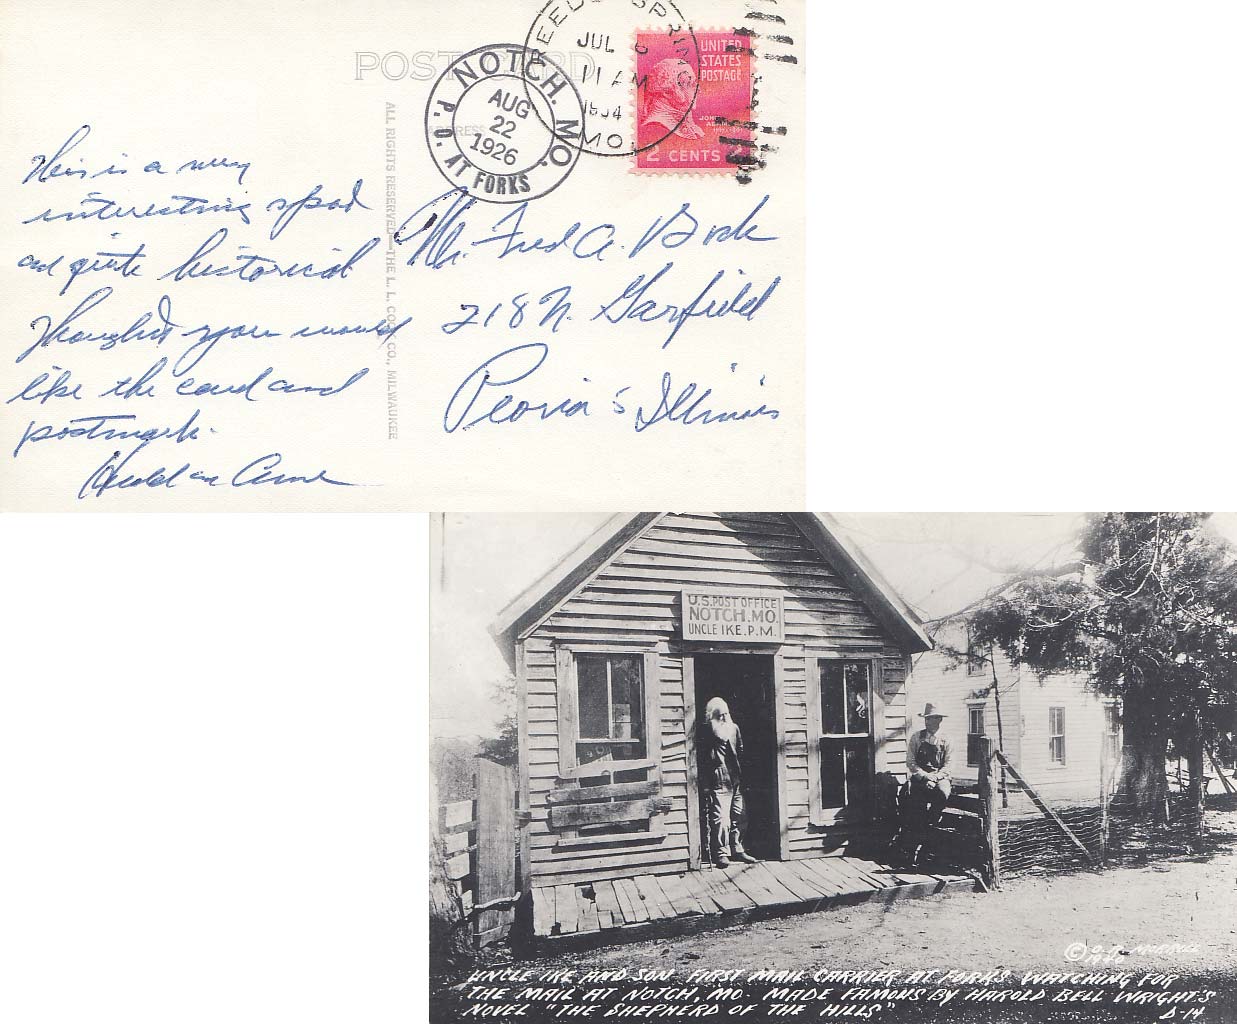 POST CARD
ADDRESS
ALL RIGHTS RESERVED—THE L. L. COOK CO., MILWAUKEE
NOTCH. MO.
AUG
22
1926
P. O. AT FORKS
REEDS SPRING
JUL 6
11 AM
1954
MO.
UNITED
STATES
POSTAGE
JOHN
ADAMS
2 CENTS 2
This is a very
interesting spot
and quite historical
Thought you would
like the card and
postmark.
Mr. Fred A.
218 N. Garfield
Peoria 5 Illinois
U.S. POST OFFICE
NOTCH. MO.
UNCLE IKE. P. M.
© MORRILL
UNCLE IKE AND SON. FIRST MAIL CARRIER AT FORKS WATCHING FOR
THE MAIL AT NOTCH, MO. MADE FAMOUS BY HAROLD BELL WRIGHT'S
NOVEL "THE SHEPHERD OF THE HILLS"
D-14